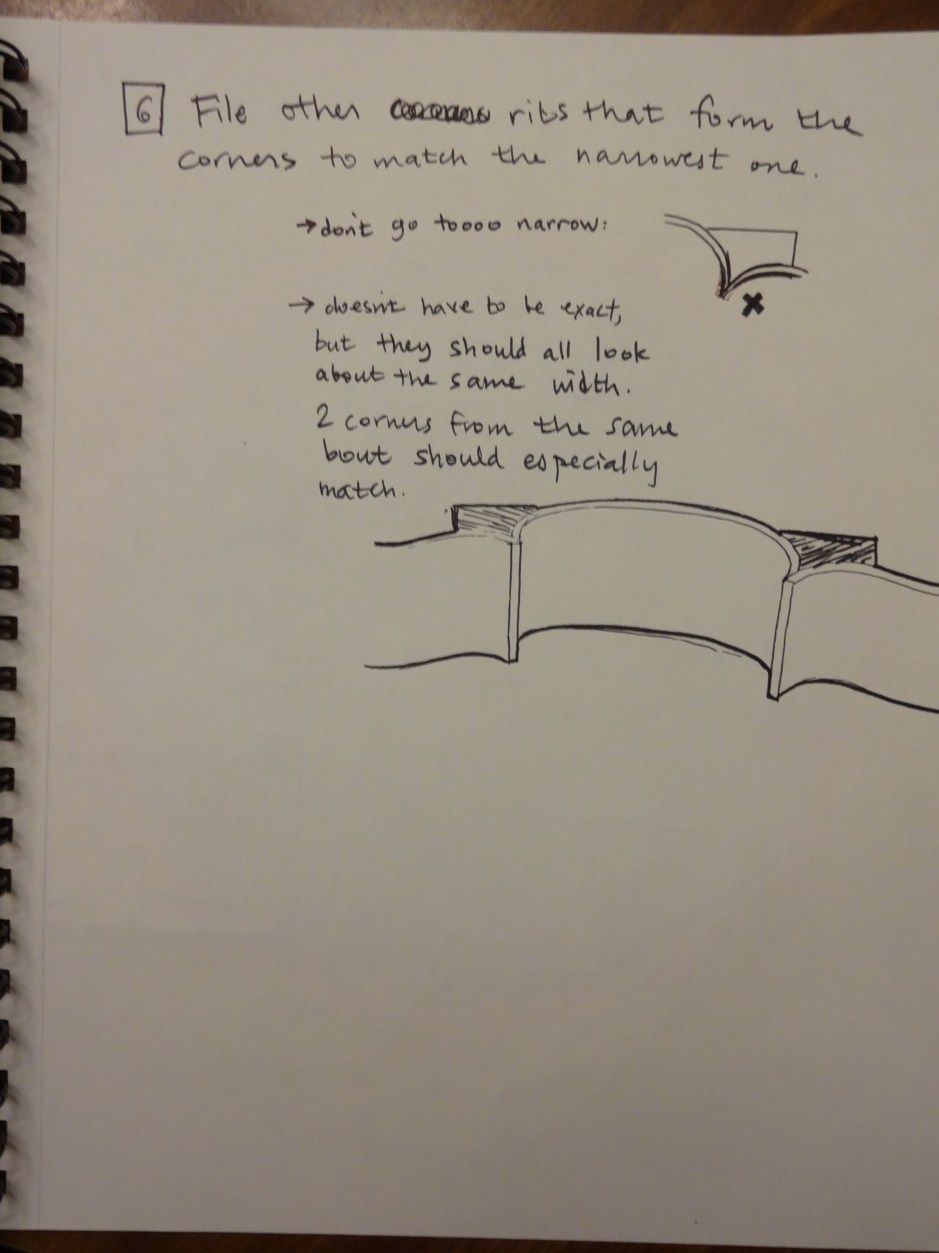 6 File other ribs that form the
corners to match the narrowest one.
→ don't go toooo narrow:
→ doesn't have to be exact,
but they should all look
about the same width.
2 corners from the same
bout should especially
match.